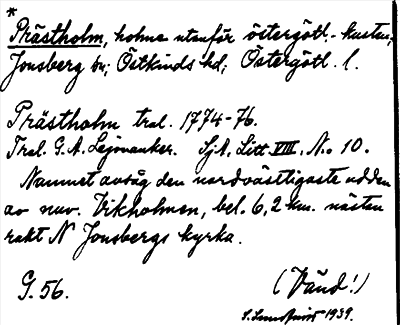 *
Prästholm, holme utanför östergötl. kusten;
Jonsberg sn; Östkinds hd; Östergötl. l.
Prästholm tral. 1774-76.
Tral. G. A. Lejonanker. SjA, Litt. VIII, No 10.
Namnet avsåg den nordvästligaste udden
av nuv. Vikholmen, bel. 6,2 km. nästan
rakt N Jonsbergs kyrka.
G. 56. (Vänd!)
1939.